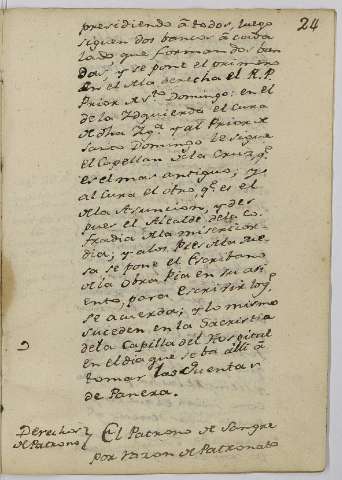 24
presidiendo â todos, luego
siguen dos bancos â cada
lado, que forman dos ban
das, y se pone el primero
en el de la derecha el R. P.
Prior de Sto. Domingo: en el
de la Izquierda el Cura
de dha Yga. y al Prior de
Santo Domingo le sigue
el Capellan de la Cruz, qe.
es el mas antiguo; y
al Cura el otro, qe. es el
de la Asuncion, y des
pues el Alcalde de la Co
fradia de la misericor
dia; y a los Pies de la Me
sa se pone el Escribano
de la Obra Pia en su asi
ento, para escribir lo qe.
se acuerda; y lo mismo
suceden en la Sacristia
de la Capilla del Hospital
en el dia que se ba alli â
tomar las Cuentas
de Panera.
Derechos
de Patrono
El Patrono de Sangre
por razon de Patronato